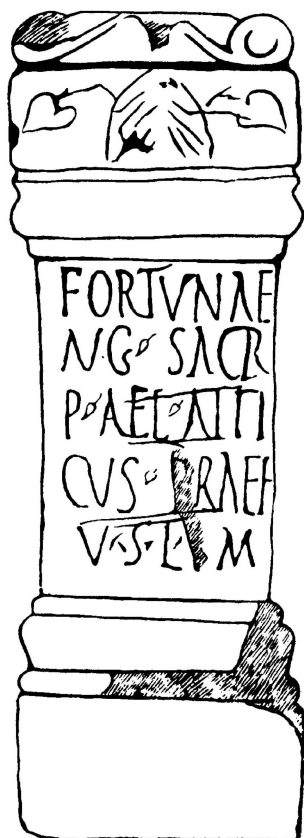 FORTVNAE
AVG · SACR
P · AEL · ATTI
CVS · PRAEF
V · S · L · M